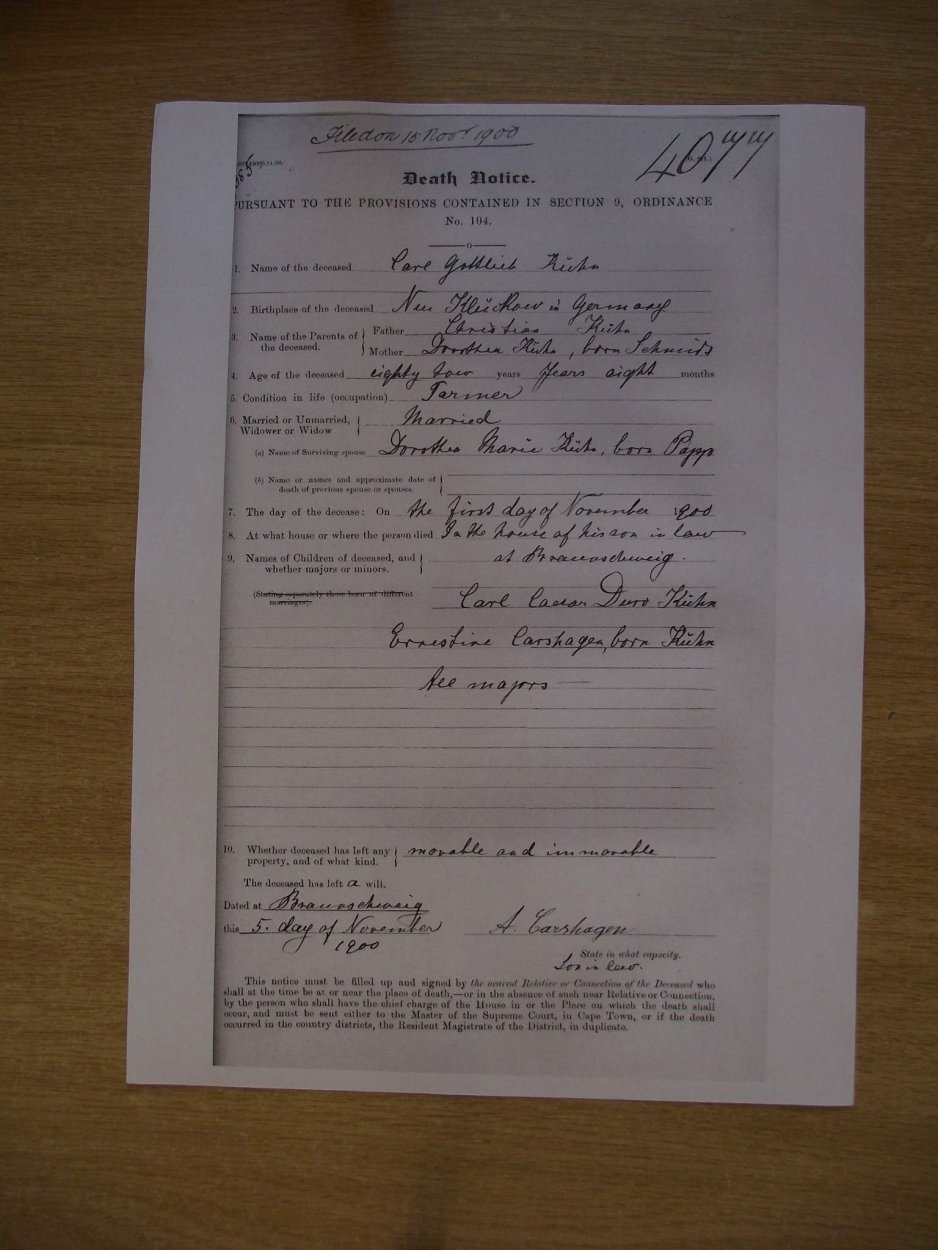 Filed on 15 Novr 1900
4077
Death Notice.
PURSUANT TO THE PROVISIONS CONTAINED IN SECTION 9, ORDINANCE
No. 104.
1. Name of the deceased Carl Gottlieb Kühn
2. Birthplace of the deceased Neu Klückow in Germany
3. Name of the Parents of the deceased. Father Christian Kühn
Mother Dorothea Kühn, born Schmidt
4. Age of the deceased eighty tow years Years eight months
5. Condition in life (occupation) Farmer
6. Married or Unmarried, Widower or Widow Married
(a) Name of Surviving spouse Dorothea Marie Kühn, born Papp
(b) Name or names and approximate date of
death of previous spouse or spouses.
7. The day of the decease: On the first day of November 1900
8. At what house or where the person died In the house of his son in law
9. Names of Children of deceased, and at Braunschweig.
whether majors or minors.
(Stating separately those born of different
marriages). Carl Caesar Duro Kühn
Ernestine Carshagen, born Kühn
All majors
10. Whether deceased has left any property, and of what kind. movable and immovable
The deceased has left a will.
Dated at Braunschweig
this 5. day of November A. Carshagen
1900
State in what capacity.
Son in law.
This notice must be filled up and signed by the nearest Relative or Connection of the Deceased who
shall at the time be at or near the place of death,—or in the absence of such near Relative or Connection,
by the person who shall have the chief charge of the House in or the Place on which the death shall
occur, and must be sent either to the Master of the Supreme Court, in Cape Town, or if the death
occurred in the country districts, the Resident Magistrate of the District, in duplicate.